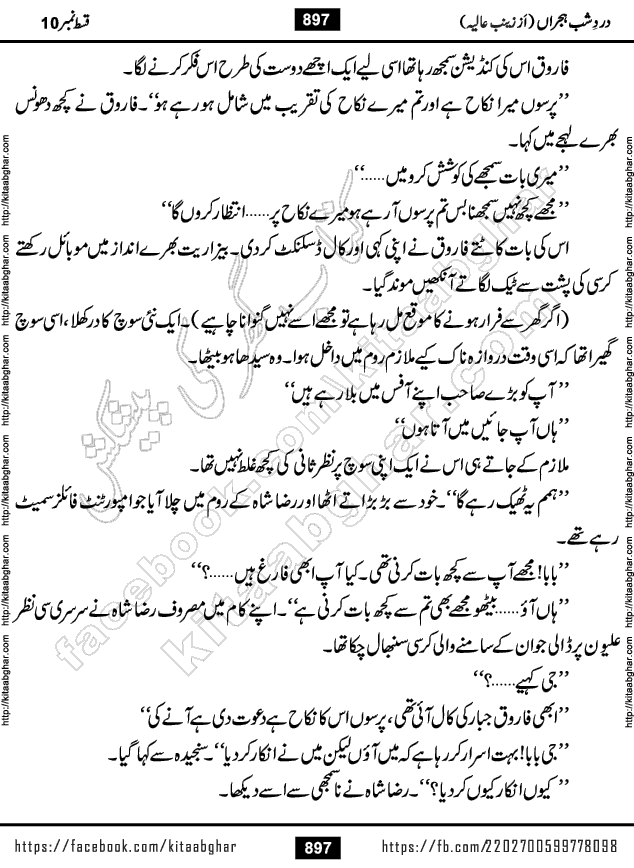 دردِ شبِ ہجراں (از زینب عالیہ)
897
قسط نمبر 10
فاروق اس کی کنڈیشن سمجھ رہا تھا اسی لیے ایک اچھے دوست کی طرح اس فکر کرنے لگا۔
’’پرسوں میرا نکاح ہے اور تم میرے نکاح کی تقریب میں شامل ہو رہے ہو‘‘۔ فاروق نے کچھ دھونس
بھرے لہجے میں کہا۔
’’میری بات سمجھے کی کوشش کرو میں ......‘‘
’’مجھے کچھ نہیں سمجھنا بس تم پرسوں آ رہے ہو میرے نکاح پر ...... انتظار کروں گا‘‘
اس کی بات کاٹتے فاروق نے اپنی کہی اور کال ڈسکنکٹ کر دی۔ بیزاریت بھرے انداز میں موبائل رکھتے
کرسی کی پشت سے ٹیک لگاتے آنکھیں موند گیا۔
(اگر گھر سے فرار ہونے کا موقع مل رہا ہے تو مجھے اسے نہیں گنوانا چاہیے)۔ ایک نئی سوچ کا در کھلا، اسی سوچ
گھیرا تھا کہ اسی وقت دروازہ ناک کیے ملازم روم میں داخل ہوا۔ وہ سیدھا ہو بیٹھا۔
’’آپ کو بڑے صاحب اپنے آفس میں بلا رہے ہیں‘‘
’’ہاں آپ جائیں میں آتا ہوں‘‘
ملازم کے جاتے ہی اس نے ایک اپنی سوچ پر نظر ثانی کی کچھ غلط نہیں تھا۔
’’ہمم یہ ٹھیک رہے گا‘‘۔ خود سے بڑبڑاتے اٹھا اور رضا شاہ کے روم میں چلا آیا جو امپورٹنٹ فائلز سمیٹ
رہے تھے۔
’’بابا! مجھے آپ سے کچھ بات کرنی تھی۔ کیا آپ ابھی فارغ ہیں ......؟‘‘
’’ہاں آؤ ...... بیٹھو مجھے بھی تم سے کچھ بات کرنی ہے‘‘۔ اپنے کام میں مصروف رضا شاہ نے سرسری سی نظر
علیون پر ڈالی جو ان کے سامنے والی کرسی سنبھال چکا تھا۔
’’جی کہیے ......؟‘‘
’’ابھی فاروق جبار کی کال آئی تھی، پرسوں اس کا نکاح ہے دعوت دی ہے آنے کی‘‘
’’جی بابا! بہت اسرار کر رہا ہے کہ میں آؤں لیکن میں نے انکار کر دیا‘‘۔ سنجیدہ سے کہا گیا۔
’’کیوں انکار کیوں کر دیا؟‘‘۔ رضا شاہ نے ناسمجھی سے اسے دیکھا۔
http://kitaabghar.com http://kitaabghar.com http://kitaabghar.com http://kitaabghar.com
http://kitaabghar.com http://kitaabghar.com http://kitaabghar.com http://kitaabghar.com
کتاب گھر کی پیشکش
facebook.com/kitaabghar
kitaabghar.com
https://facebook.com/kitaabghar
897
https://fb.com/2202700599778098